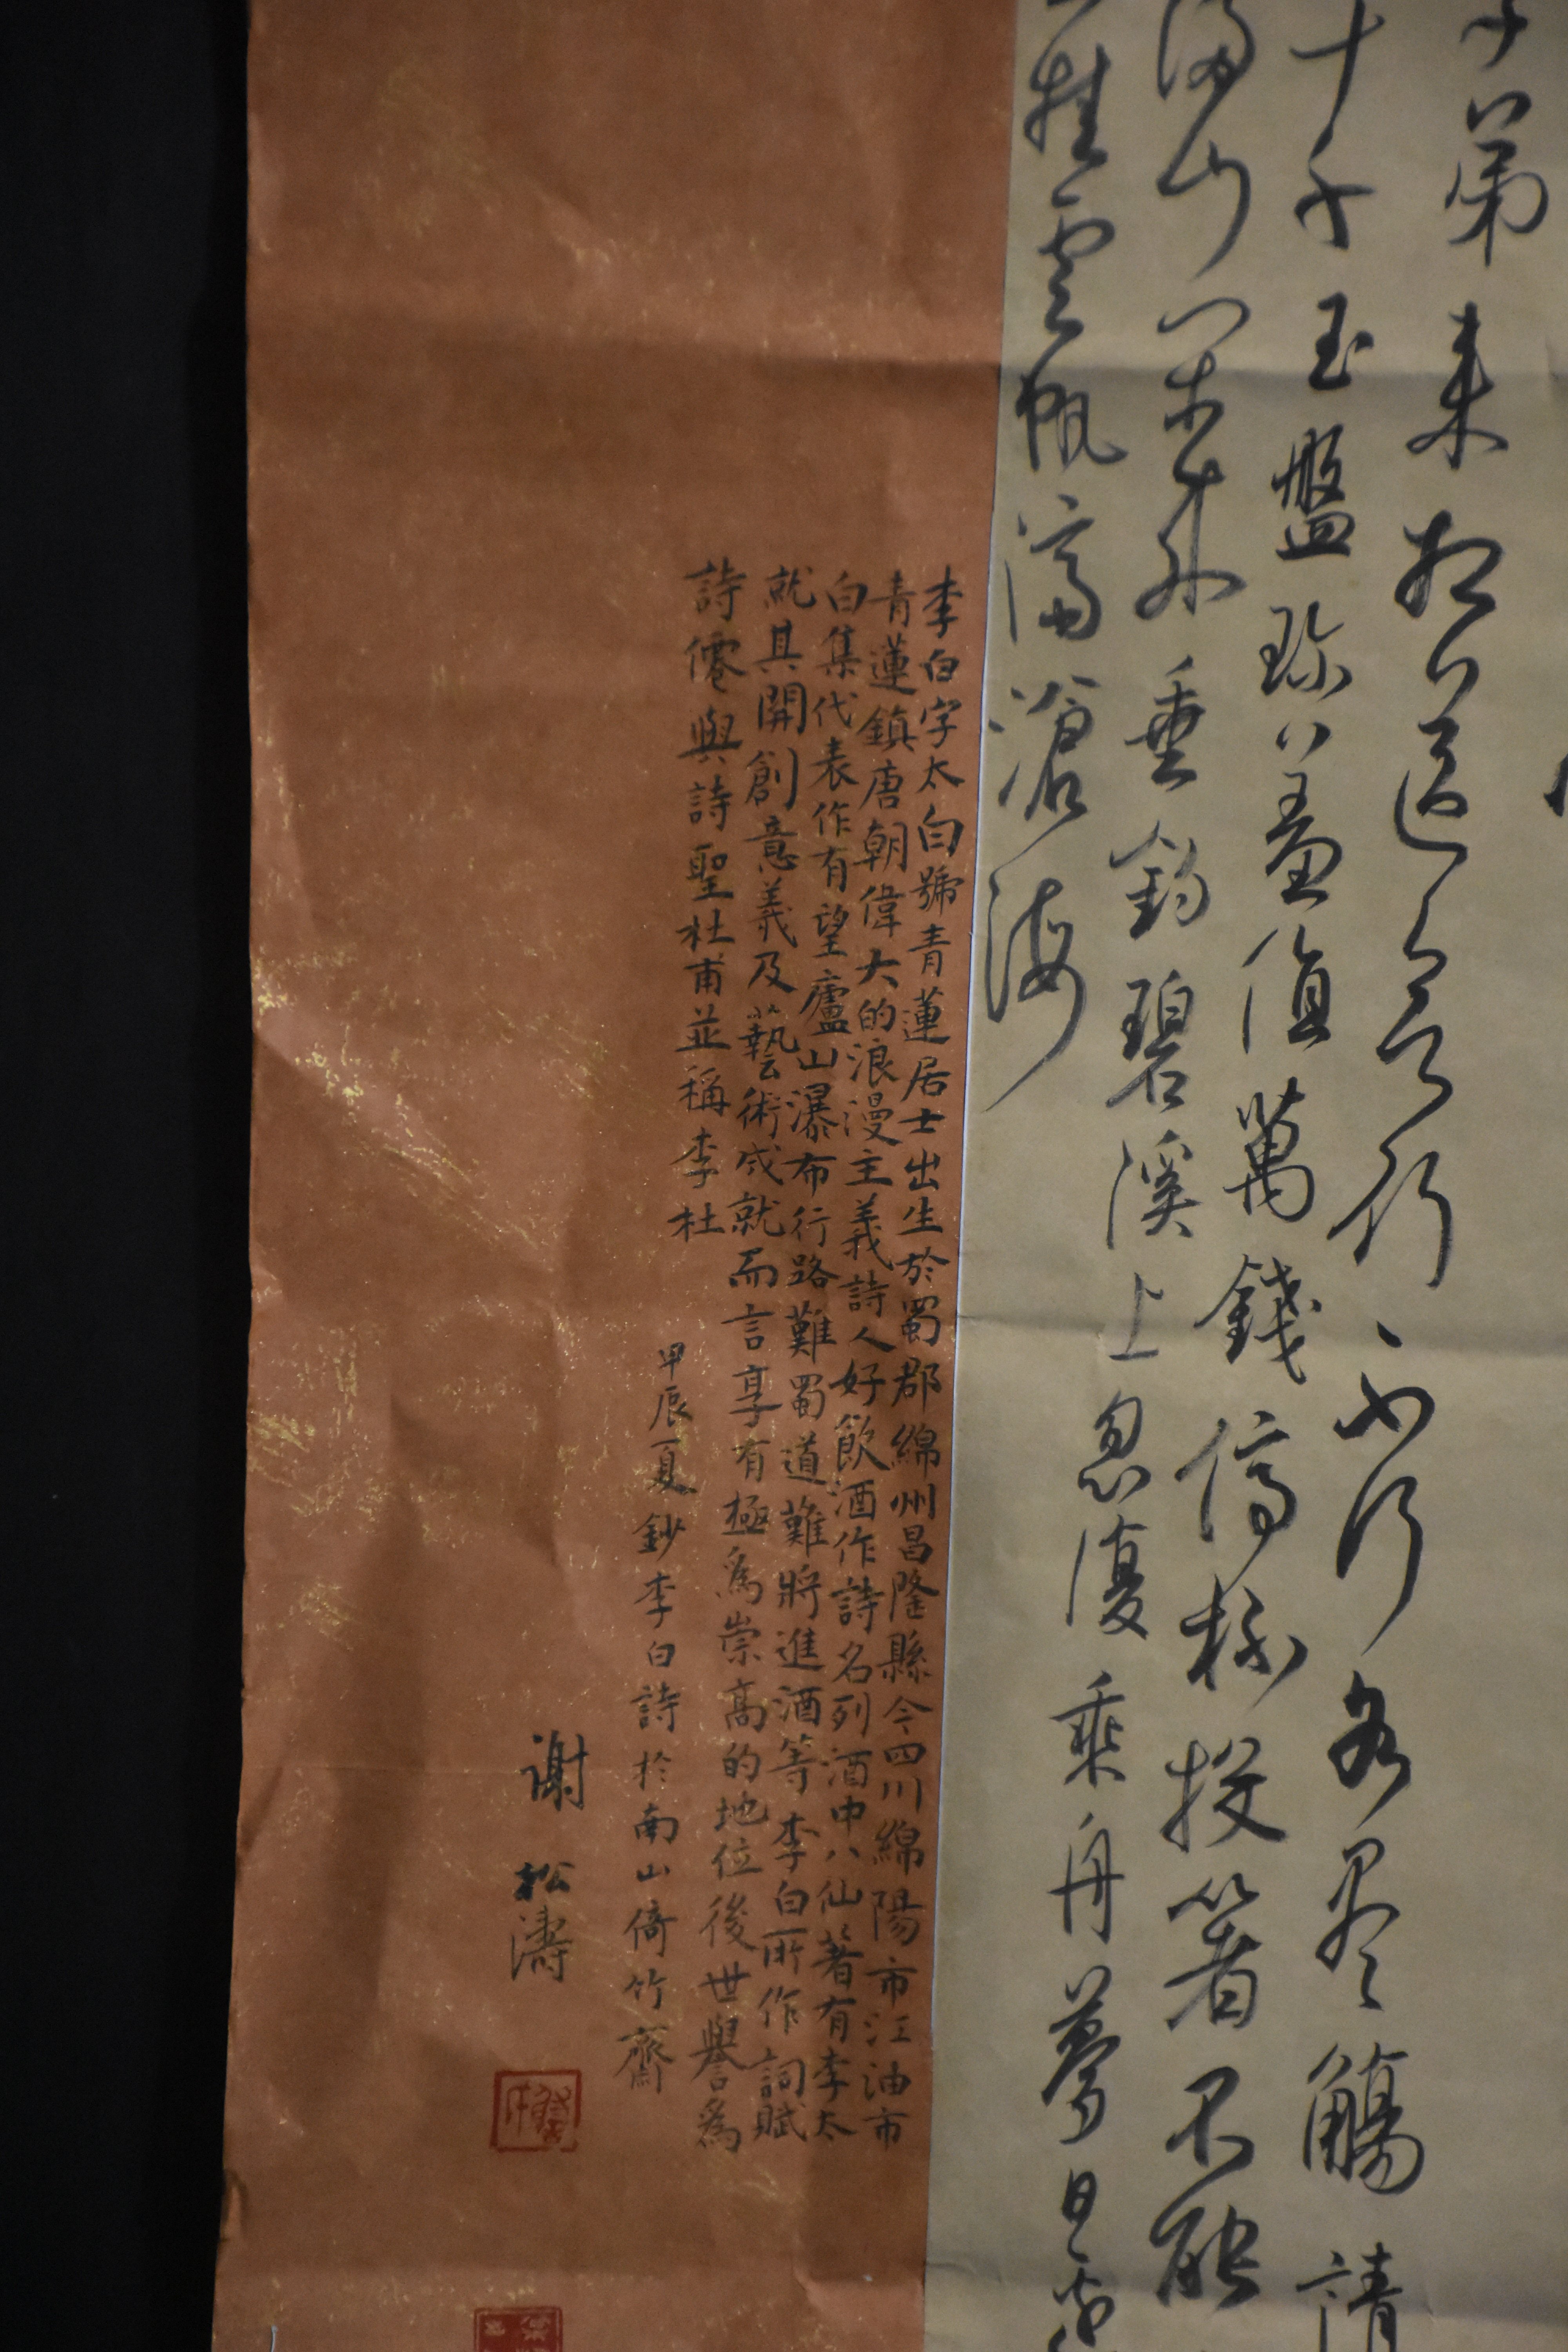 子弟来相送欲行不行各尽觞請
十千玉盤珍羞值萬錢停杯投箸不能
满山閑来垂釣碧溪上忽復乘舟夢日
挂雲帆濟滄海
李白字太白號青蓮居士出生於蜀郡綿州昌隆縣今四川綿陽市江油市
青蓮鎮唐朝偉大的浪漫主義詩人好飲酒作詩名列酒中八仙著有李太
白集代表作有望廬山瀑布行路難蜀道難將進酒等李白所作詞賦
就其開創意義及藝術成就而言享有極爲崇高的地位後世譽爲
詩僊與詩聖杜甫並稱李杜
甲辰夏鈔李白詩於南山倚竹齋
谢松濤